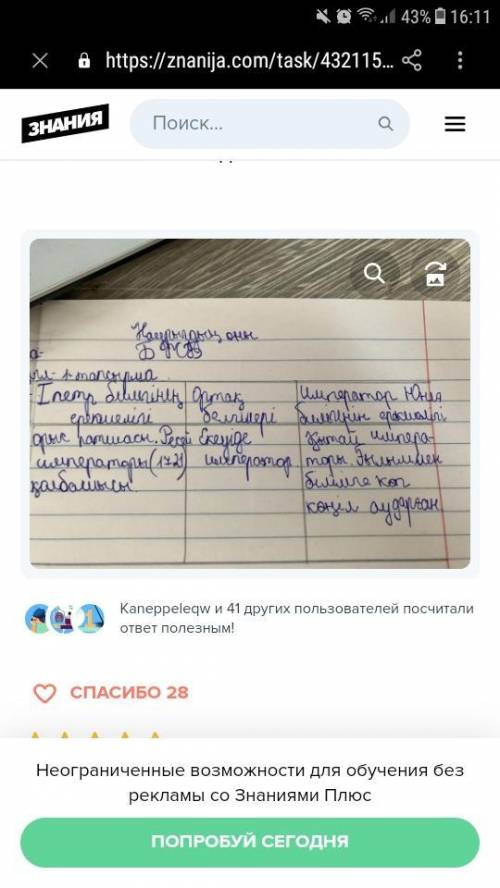 43% 16:11
https://znanija.com/task/432115...
ЗНАНИЯ
Поиск...
Наурыздың оны
БЖБ
1-тапсырма
I петр билігінің
ерекшелігі
орыс патшасы. Ресей
императоры(1721)
қайбомысы.
Ортақ
белгілері
Екеуіде
император
Император Юния
билігінің ерекшелігі
Қытай импера-
торы. Ғылым мен
білімге көп
көңіл аударған
Kaneppeleqw и 41 других пользователей посчитали
ответ полезным!
СПАСИБО 28
Неограниченные возможности для обучения без
рекламы со Знаниями Плюс
ПОПРОБУЙ СЕГОДНЯ